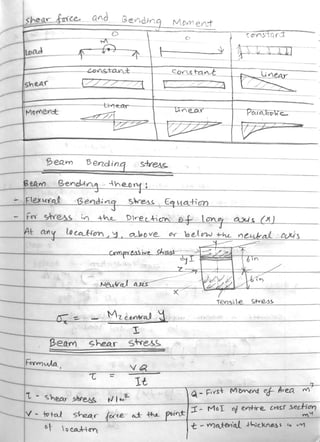 Shear force and Bending Moment
0 0 constant
Load
M
Shear constant Constant Linear
Moment Linear Linear Parabolic
Beam Bending stress
Beam Bending theory:
- Flexural Bending stress Equation
- For stress in the Direction of long axis (x)
At any location, y, above or below the neutral axis
Compressive
dy
6in
Z
Neutral axis
6in
X
Tensile stress
σx = - Mz central y / I
Beam shear stress
Formula,
τ = VQ / It
τ - shear stress N/m²
V - total shear force at the point of location
Q - First Moment of Area m³
I - MoI of entire cross section m⁴
t - material thickness in m